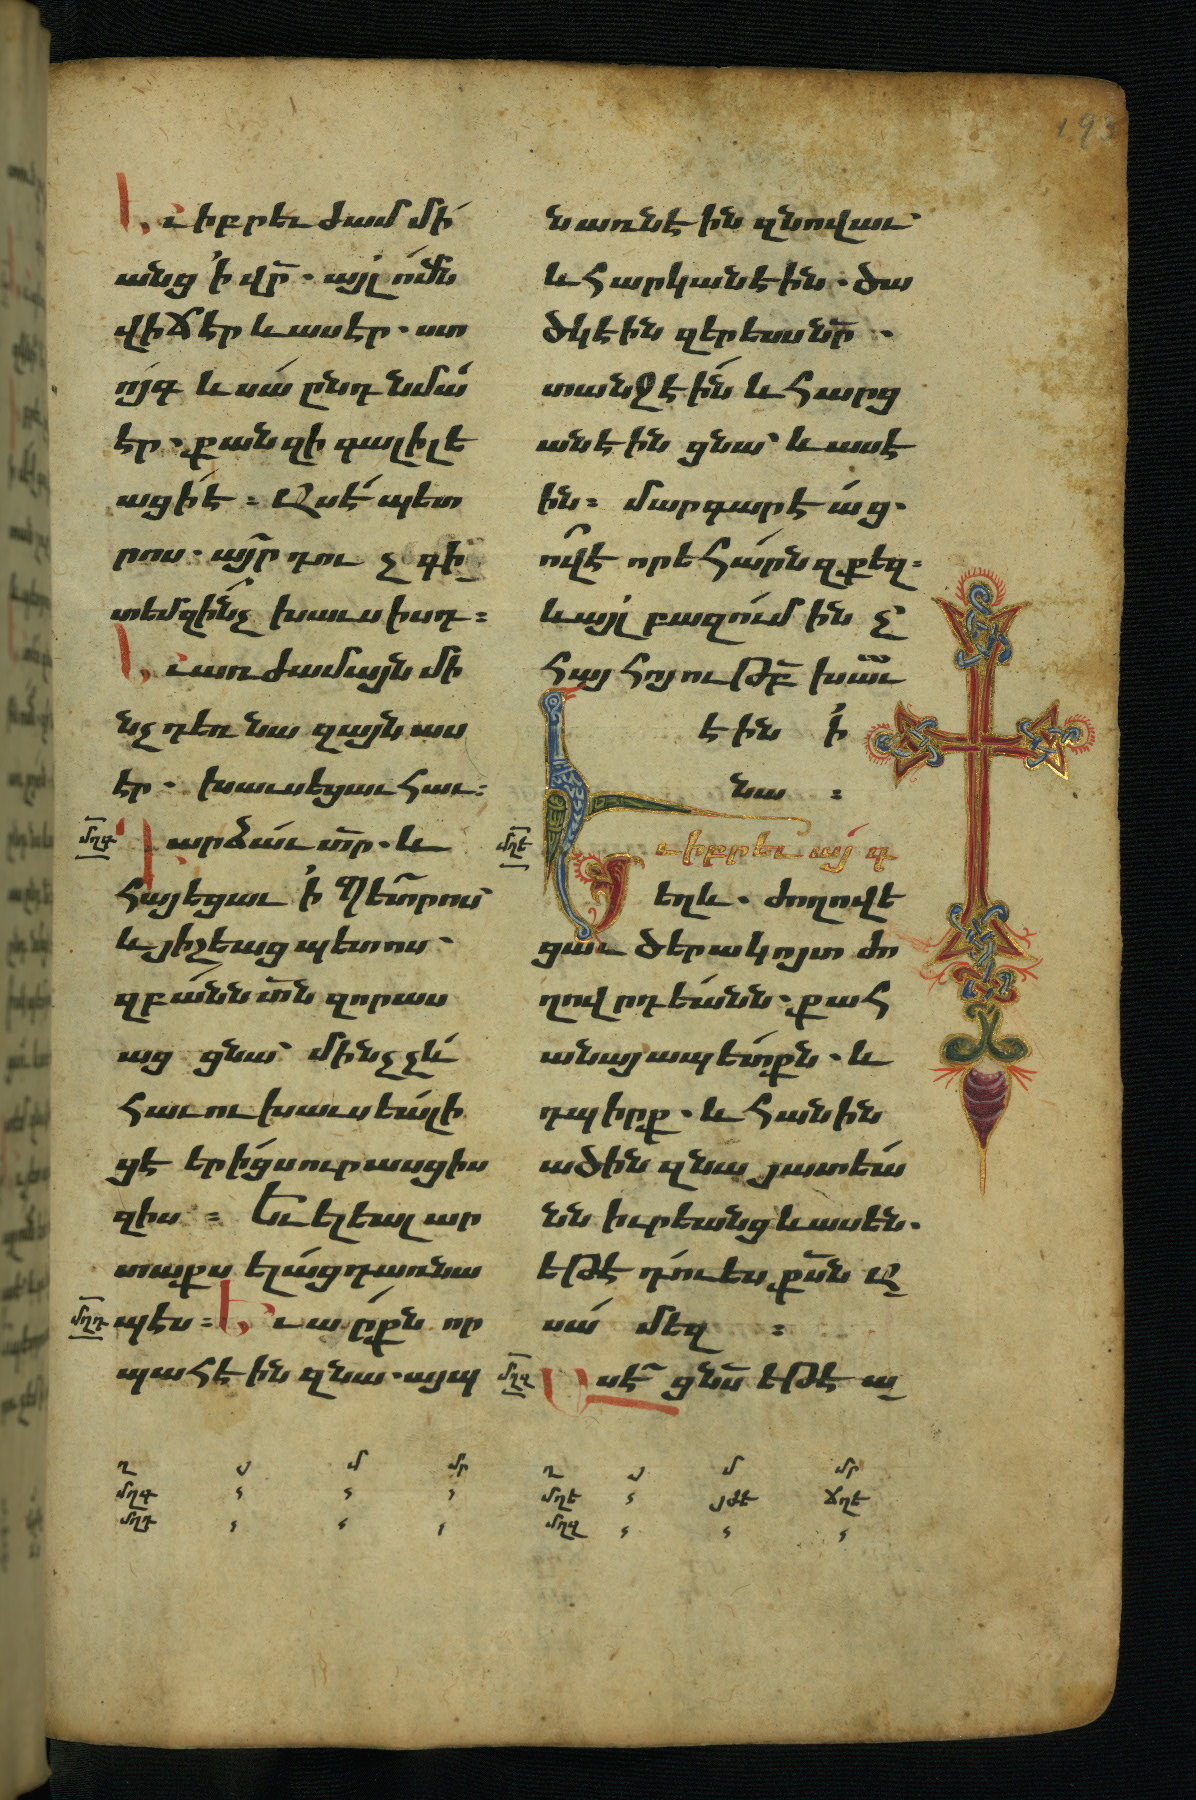 193
Եւ իբրեւ ժամ մի
անց ՚ի վր̃ . այլ ոմն
վիճէր և ասէր . ստ
ոյգ և սա ընդ նմա
էր . քանզի գալիլէ
ացի է : Ասէ պետ
րոս . այր դու չգի
տեմ զինչ խաւսիսդ :
Եւ առժամայն մի
նչդեռ նա զայն աս
էր . խաւսեցաւ հաւ :
մղգ Դարձաւ տր̃ . և
հայեցաւ ՚ի Պետրոս
և յիշեաց պետոս .
զբանն տն̃ զոր աս
աց ցնա մինչչև
հաւու խաւսեալի
ցէ երիցս ուրասցիս
զիս : Եւ ելեալ ար
տաքս ելաց դառնա
մղդ պէս : Եւ արքն որ
պահէին զնա . այպ
ն առնէին զնովաւ
և հարկանէին . ծա
ծկէին զերեսս նր̃ .
տանջէին և հարց
անէին ցնա և ասէ
ին : մարգարէաց .
ով է որ եհարն զքեզ :
և այլ բազում ինչ
հայհոյութբ̃ խաւս
էին ՚ի
նա :
մղե Եւ իբրեւ այգ
եղև . ժողովե
ցաւ ծերակոյտ ժո
ղովրդեանն . քահ
անայապետքն . և
դպիրք . և հանին
ածին զնա յատեա
նն իւրեանց և ասեն .
եթէ դու ես քս̃ն ա
սա մեզ :
մղզ Ասէ ցնս̃ եթէ ա
ղ յ մ մր
մղգ
մղդ
ղ յ մ մր
մղե յժե ճղե
մղզ